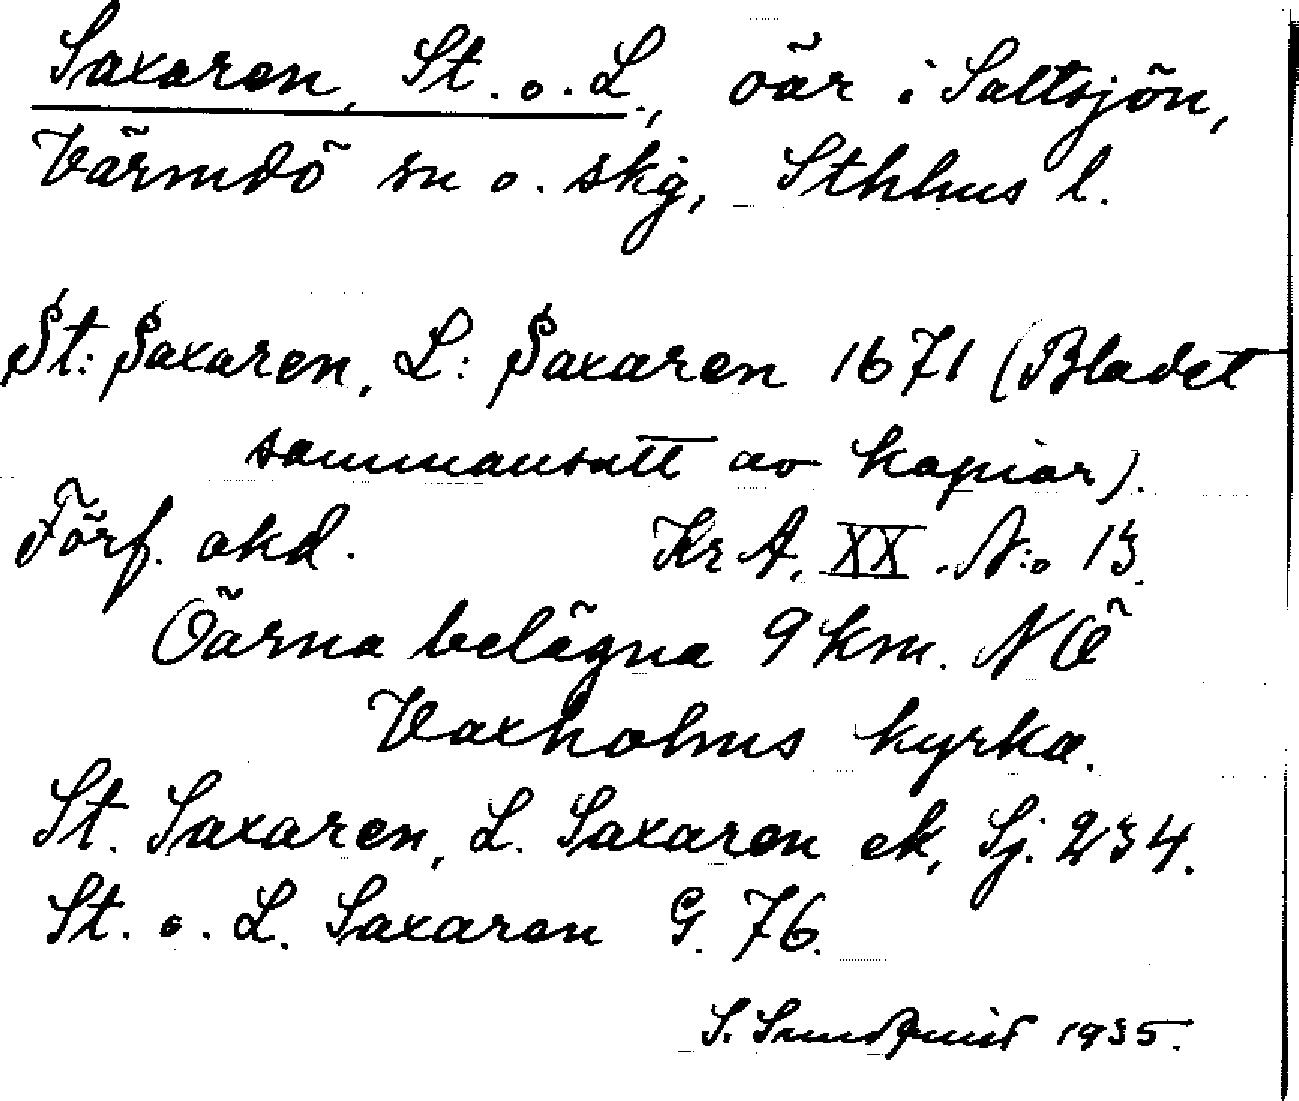 Saxaren, St. o. L., öar i Saltsjön,
Värmdö sn o. skg, Sthlms l.
St: Saxaren, L: Saxaren 1671 (Bladet
sammansatt av kopior).
Förf. okd. Kr A, XX. N:o 13.
Öarna belägna 9 km. NÖ
Vaxholms kyrka.
St. Saxaren, L. Saxaren ek, Sj. 234.
St. o. L. Saxaren G. 76.
S. Sundquist 1935.